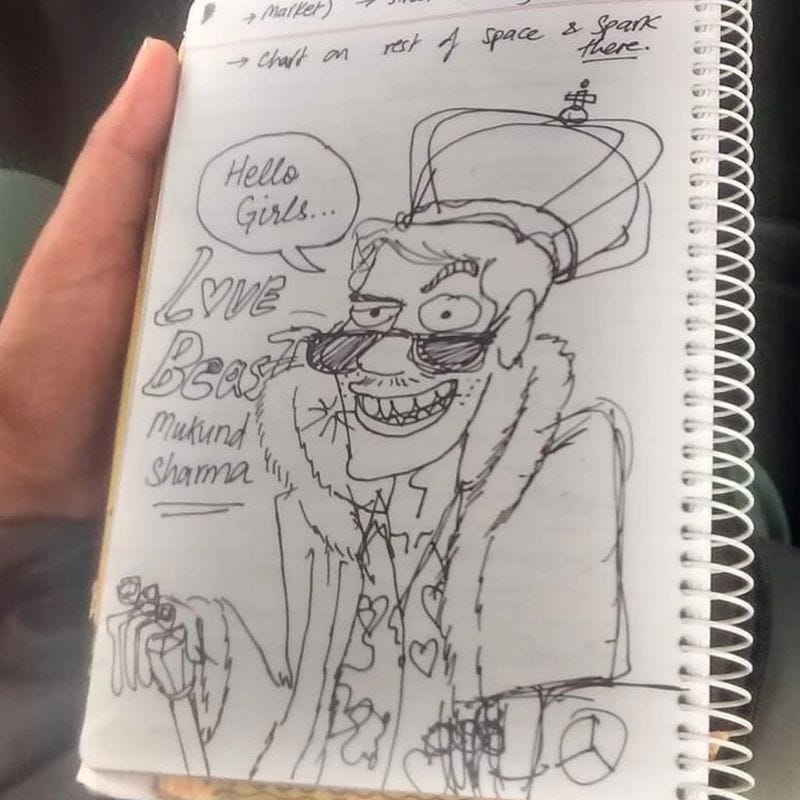 → Market) →
→ Chart on rest of Space & Spark
there.
Hello
Girls...
Love
Beast
Mukund
Sharma